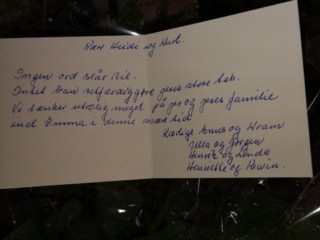 Kære Heidi og Kurt.
Ingen ord slår til.
Onsel kan retfærdiggøre jeres store tab.
Vi tænker utrolig meget på jer og jeres familie
incl Emma i denne svære tid.
Kærlige og
Ulla og Jørgen
Henrik og Linda
Henriette og